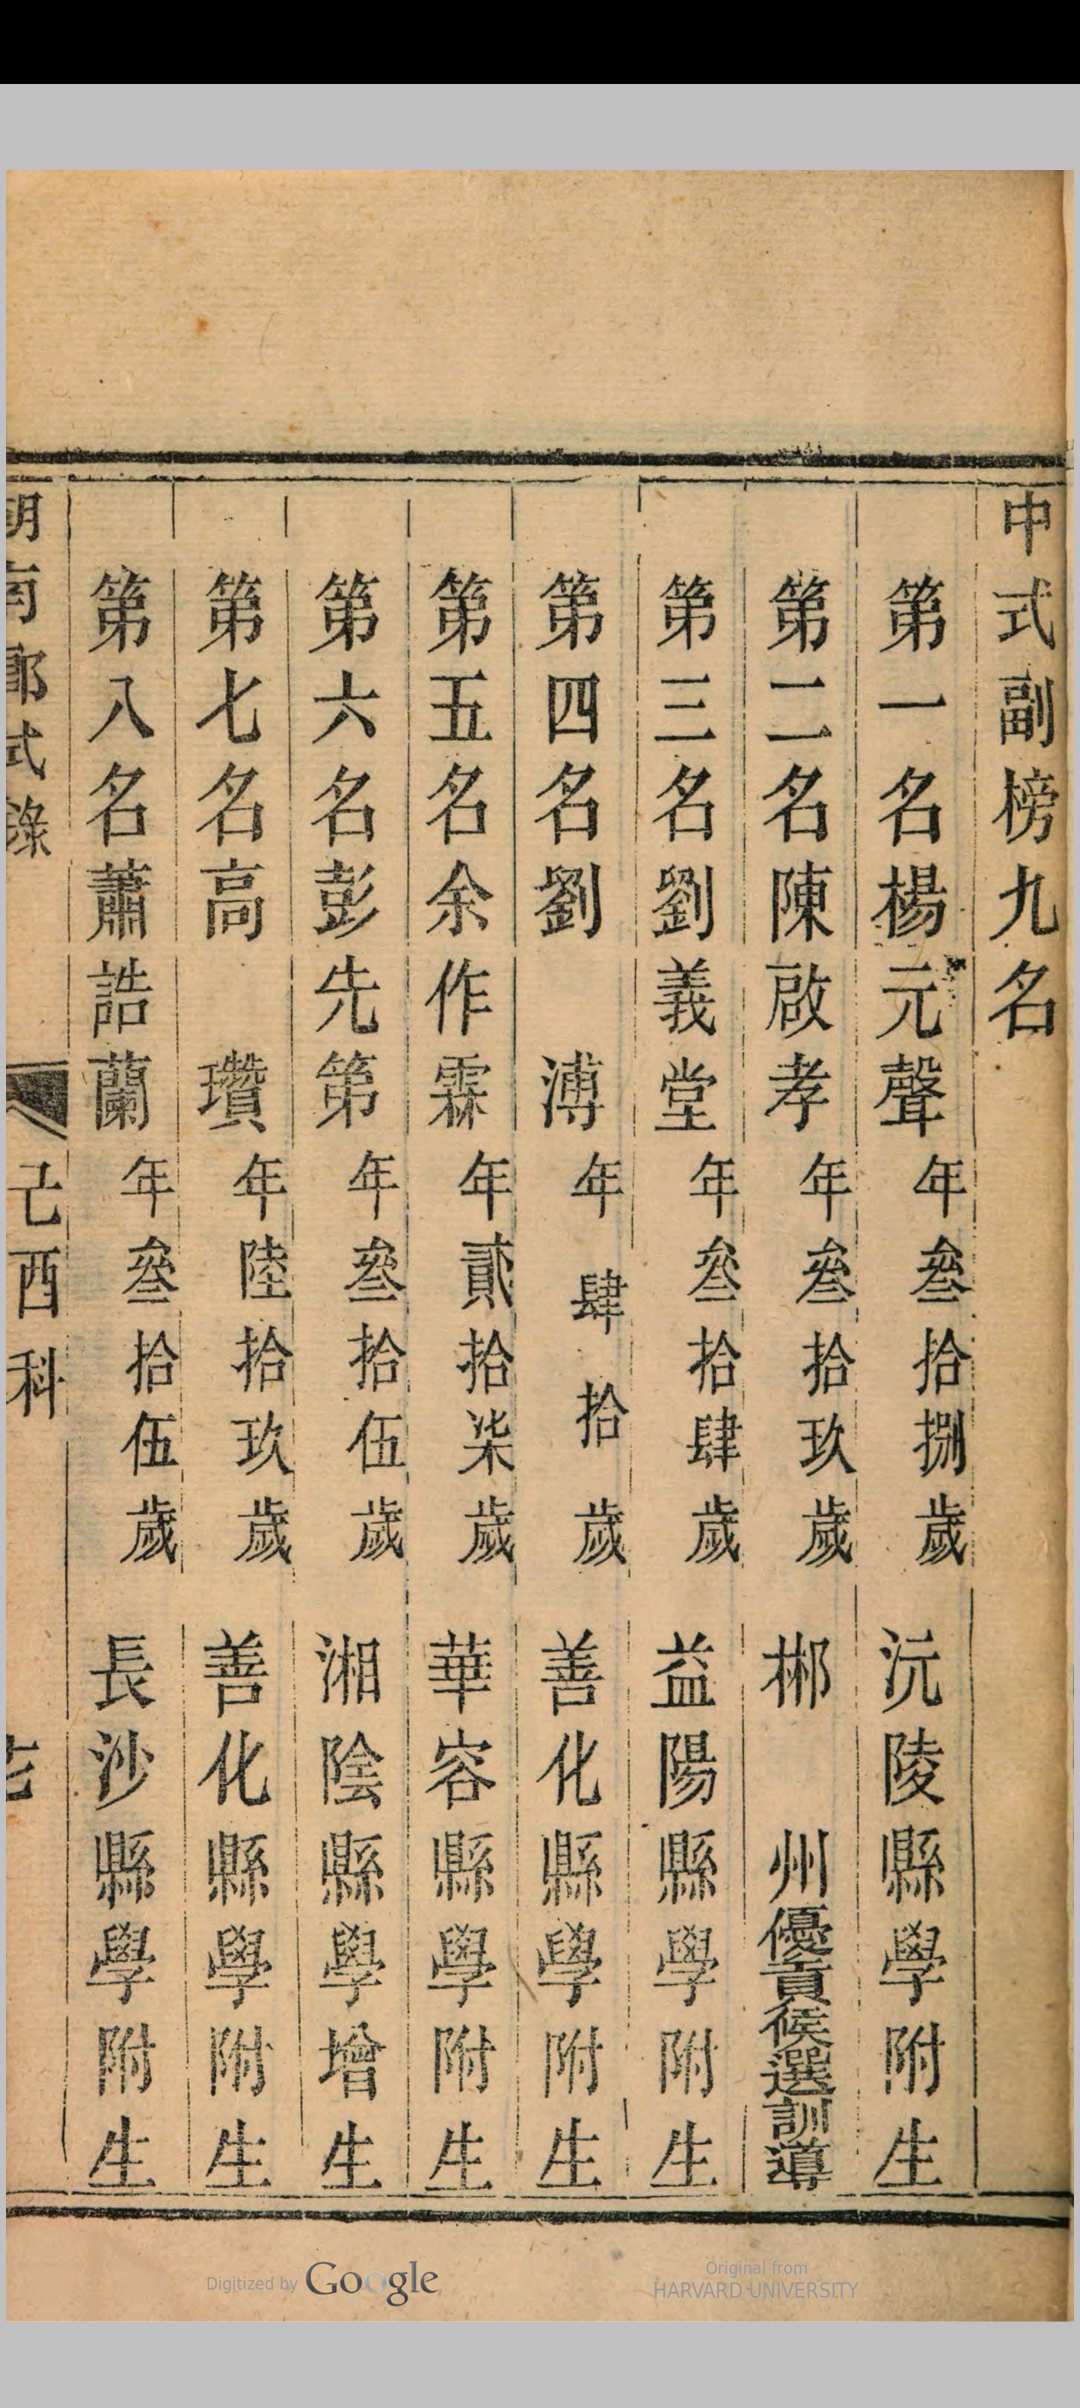 中式副榜九名
第一名楊元聲 年叄拾捌歲 沅陵縣學附生
第二名陳啟孝 年叄拾玖歲 郴州優貢候選訓導
第三名劉義堂 年叄拾肆歲 益陽縣學附生
第四名劉溥 年肆拾歲 善化縣學附生
第五名余作霖 年貳拾柒歲 華容縣學附生
第六名彭先第 年叄拾伍歲 湘陰縣學增生
第七名高瓚 年陸拾玖歲 善化縣學附生
第八名蕭誥蘭 年叄拾伍歲 長沙縣學附生
湖南鄉式錄 己酉科
Digitized by Google
Original from
HARVARD UNIVERSITY